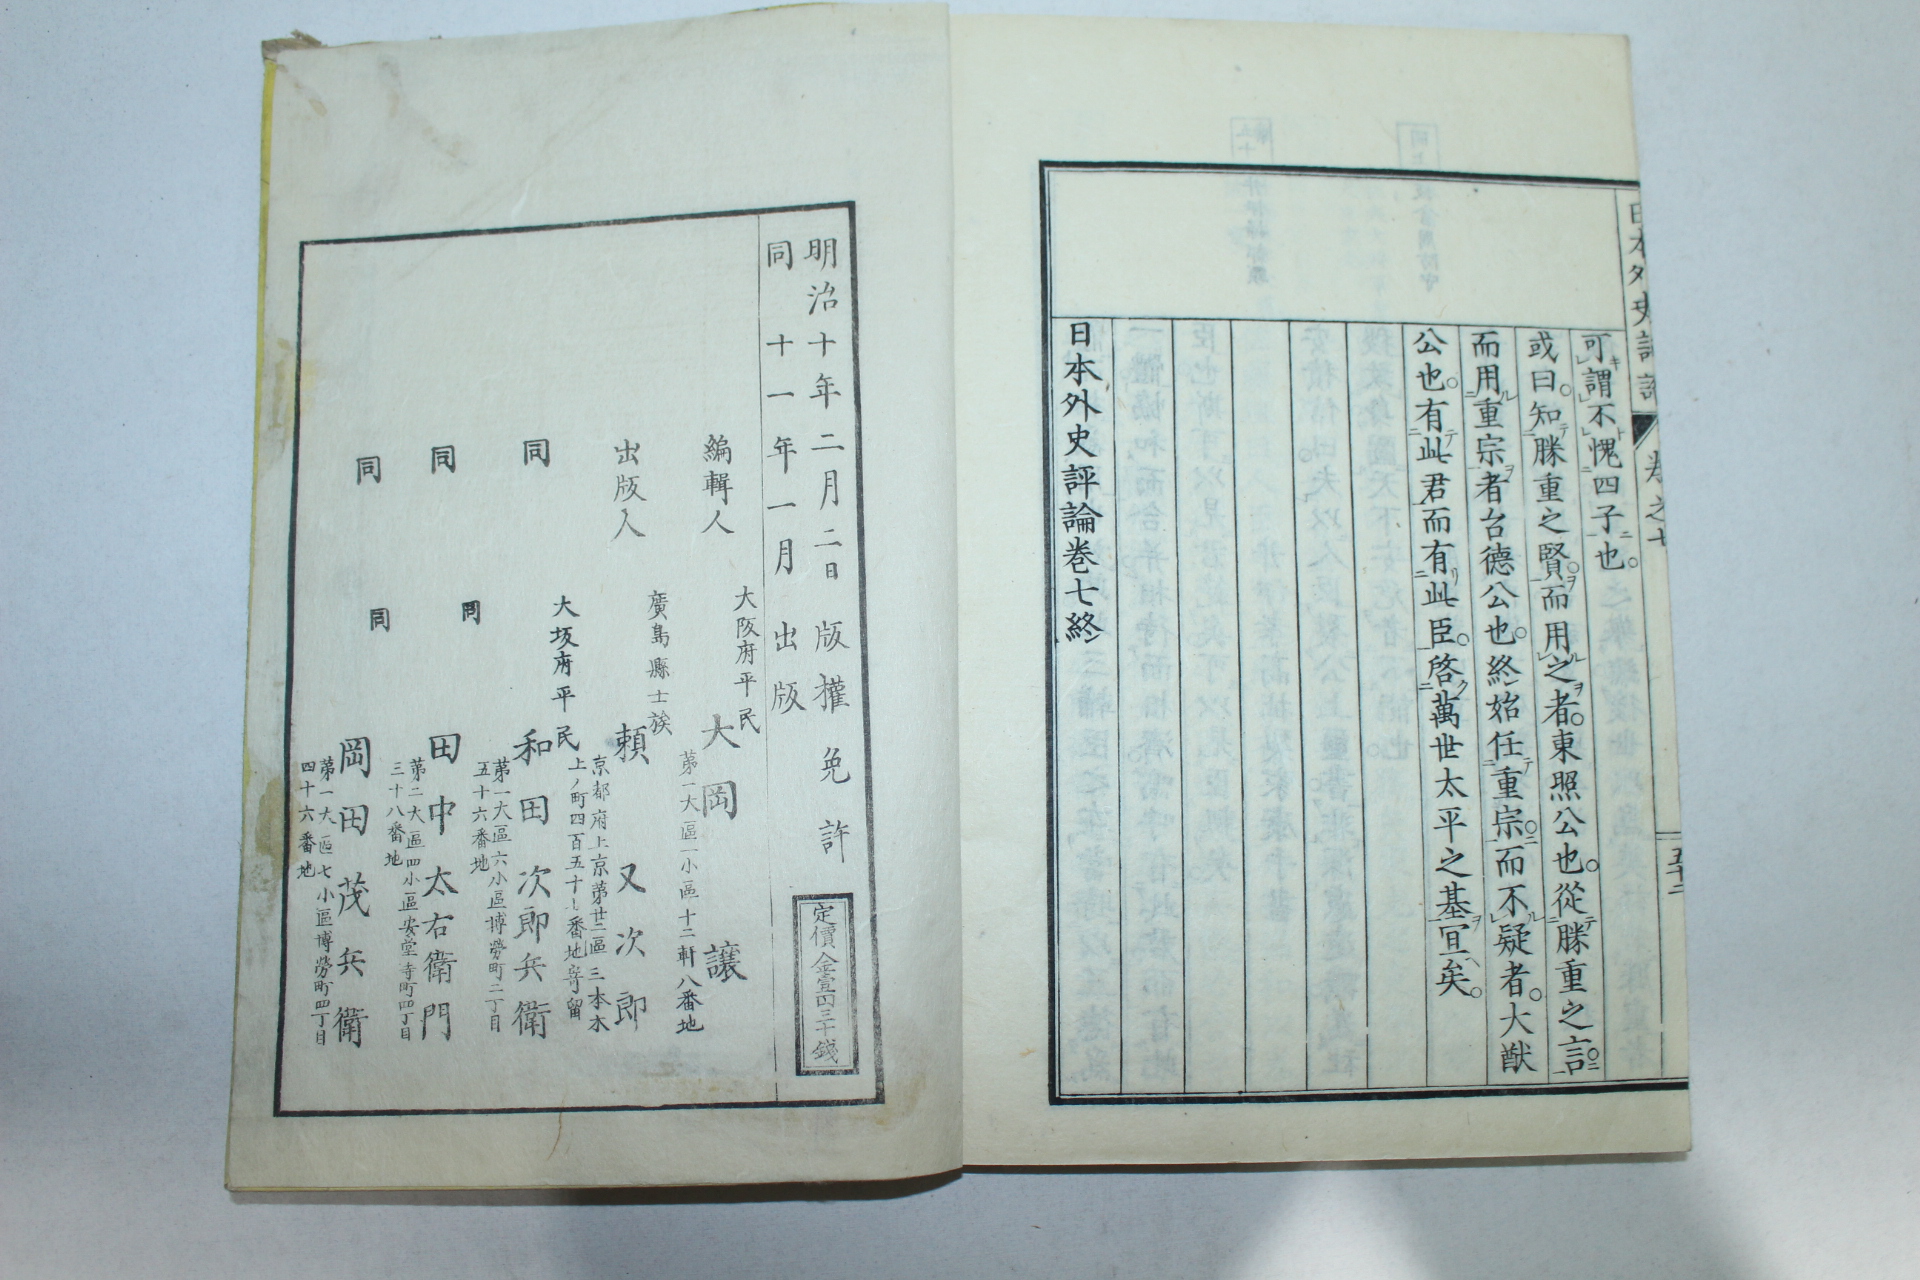 日本外史評論
卷之七
五十二
可謂不愧四子也。
或曰。知勝重之賢。而用之者。東照公也。從勝重之言。
而用重宗者台德公也。終始任重宗。而不疑者。大猷
公也。有此君而有此臣。啓萬世太平之基冝矣。
日本外史評論卷七終
明治十年二月二日 版權免許
同 十一年一月 出版
定價金壹円三十錢
編輯人
大阪府平民
大岡 讓
第一大區一小區十二軒八番地
出版人
廣島縣士族
頼 又次郎
京都府上京第廿二區三本木
上ノ町四百五十一番地寄留
同
大坂府平民
和田次郎兵衛
第一大區六小區博勞町二丁目
五十六番地
同
同
田中太右衛門
第二大區四小區安堂寺町四丁目
三十八番地
同
同
岡田茂兵衛
第一大區七小區博勞町四丁目
四十六番地